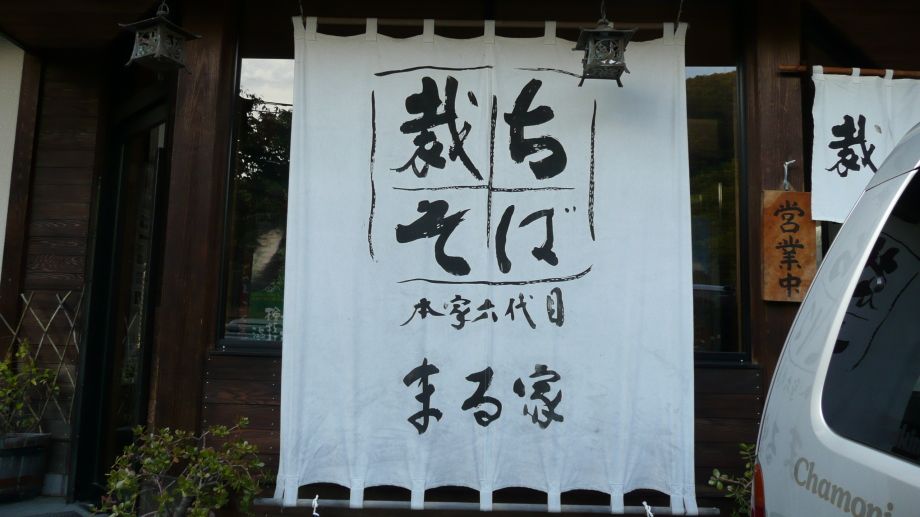 裁ち
そば
本家六代目
まる家
裁
営業中
Chamoni